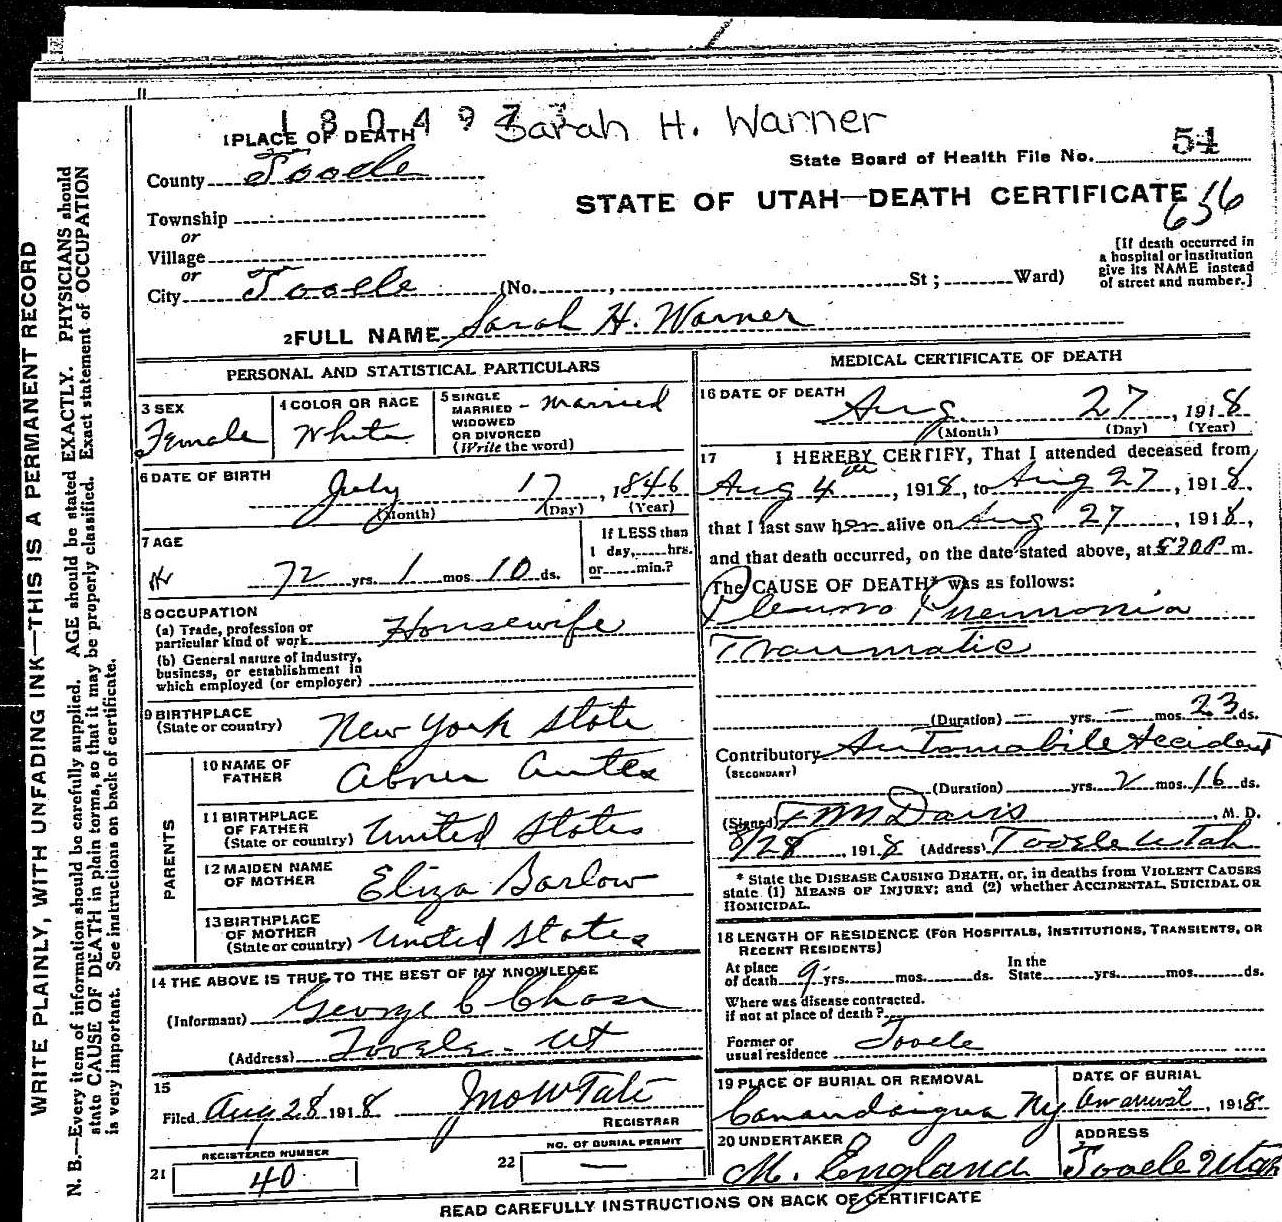 1804977 Sarah H. Warner
1 PLACE OF DEATH
State Board of Health File No. 54
County Tooele
STATE OF UTAH—DEATH CERTIFICATE
656
Township
or
Village
or
City Tooele (No. , St; Ward)
[If death occurred in
a hospital or institution
give its NAME instead
of street and number.]
2 FULL NAME Sarah H. Warner
PERSONAL AND STATISTICAL PARTICULARS
3 SEX
Female
4 COLOR OR RACE
White
5 SINGLE
MARRIED - Married
WIDOWED
OR DIVORCED
(Write the word)
6 DATE OF BIRTH
July 17, 1846
(Month) (Day) (Year)
7 AGE
72 yrs. 1 mos. 10 ds.
If LESS than
1 day, hrs.
or min.?
8 OCCUPATION
(a) Trade, profession or
particular kind of work Housewife
(b) General nature of industry,
business, or establishment in
which employed (or employer)
9 BIRTHPLACE
(State or country) New York State
PARENTS
10 NAME OF
FATHER Abner Antes
11 BIRTHPLACE
OF FATHER
(State or country) United States
12 MAIDEN NAME
OF MOTHER Eliza Barlow
13 BIRTHPLACE
OF MOTHER
(State or country) United States
14 THE ABOVE IS TRUE TO THE BEST OF MY KNOWLEDGE
(Informant) George C Chase
(Address) Tooele - Ut
15
Filed Aug 28 1918 Jno W Tate
REGISTRAR
REGISTERED NUMBER
21 40
NO. OF BURIAL PERMIT
22 —
MEDICAL CERTIFICATE OF DEATH
16 DATE OF DEATH
Aug. 27, 1918
(Month) (Day) (Year)
17 I HEREBY CERTIFY, That I attended deceased from
Aug 4th, 1918, to Aug 27, 1918
that I last saw her alive on Aug 27, 1918,
and that death occurred, on the date stated above, at 530P m.
The CAUSE OF DEATH* was as follows:
Pleuro Pnemonia
Traumatic
(Duration) — yrs. — mos. 23 ds.
Contributory Automobile Accident
(SECONDARY)
(Duration) yrs. 2 mos. 16 ds.
(Signed) F M Davis, M. D.
8/28, 1918 (Address) Tooele Utah
* State the DISEASE CAUSING DEATH, or, in deaths from VIOLENT CAUSES
state (1) MEANS OF INJURY; and (2) whether ACCIDENTAL, SUICIDAL OR
HOMICIDAL.
18 LENGTH OF RESIDENCE (FOR HOSPITALS, INSTITUTIONS, TRANSIENTS, OR
RECENT RESIDENTS)
At place
of death 9 yrs. mos. ds.
In the
State yrs. mos. ds.
Where was disease contracted.
if not at place of death?
Former or
usual residence Tooele
19 PLACE OF BURIAL OR REMOVAL
Canandaigua Ny
DATE OF BURIAL
On arrival, 1918
20 UNDERTAKER
M. England
ADDRESS
Tooele Utah
READ CAREFULLY INSTRUCTIONS ON BACK OF CERTIFICATE
WRITE PLAINLY, WITH UNFADING INK—THIS IS A PERMANENT RECORD
N. B.—Every item of information should be carefully supplied. AGE should be stated EXACTLY. PHYSICIANS should
state CAUSE OF DEATH in plain terms, so that it may be properly classified. Exact statement of OCCUPATION
is very important. See instructions on back of certificate.